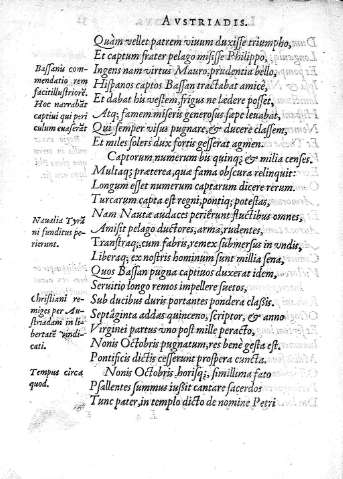 AVSTRIADIS.
Quàm vellet patrem viuum duxisse triumpho,
Et captum frater pelago misisse Philippo,
Bassanus com
mendatio rem
facit illustriorē.
Hoc narrabāt
captiui qui peri
culum euaserāt
Ingens nam virtus Mauro, prudentia bello,
Hispanos captos Bassan tractabat amicè,
Et dabat his vestem, frigus ne ledere posset,
Atq; famem miseris generosus sæpe leuabat,
Qui semper visus pugnare, & ducere classem,
Et miles solers dux fortis gesserat agmen.
Captorum numerum bis quinq; & milia censes.
Multaq; præterea, quæ fama obscura relinquit:
Longum esset numerum captarum dicere rerum.
Turcarum capta est regni, pontiq; potestas,
Naualia Tyrā
ni funditus pe-
rierunt.
Nam Nautæ audaces perierunt fluctibus omnes,
Amisit pelago ductores, arma, rudentes,
Transtraq; cum fabris, remex submersus in vndis,
Liberaq; ex nostris hominum sunt millia sena,
Quos Bassan pugna captiuos duxerat idem,
Seruitio longo remos impellere suetos,
Christiani re-
miges per Au-
striadam in li-
bertatē vindi-
cati.
Sub ducibus duris portantes pondera classis.
Septaginta addas quingeno, scriptor, & anno
Virginei partus vno post mille peracto,
Nonis Octobris pugnatum, res benè gesta est,
Pontificis dictis cesserunt prospera cuncta.
Tempus circa
quod.
Nonis Octobris, horisq;, simillima fato
Psallentes summus iußit cantare sacerdos
Tunc pater, in templo dicto de nomine Petri